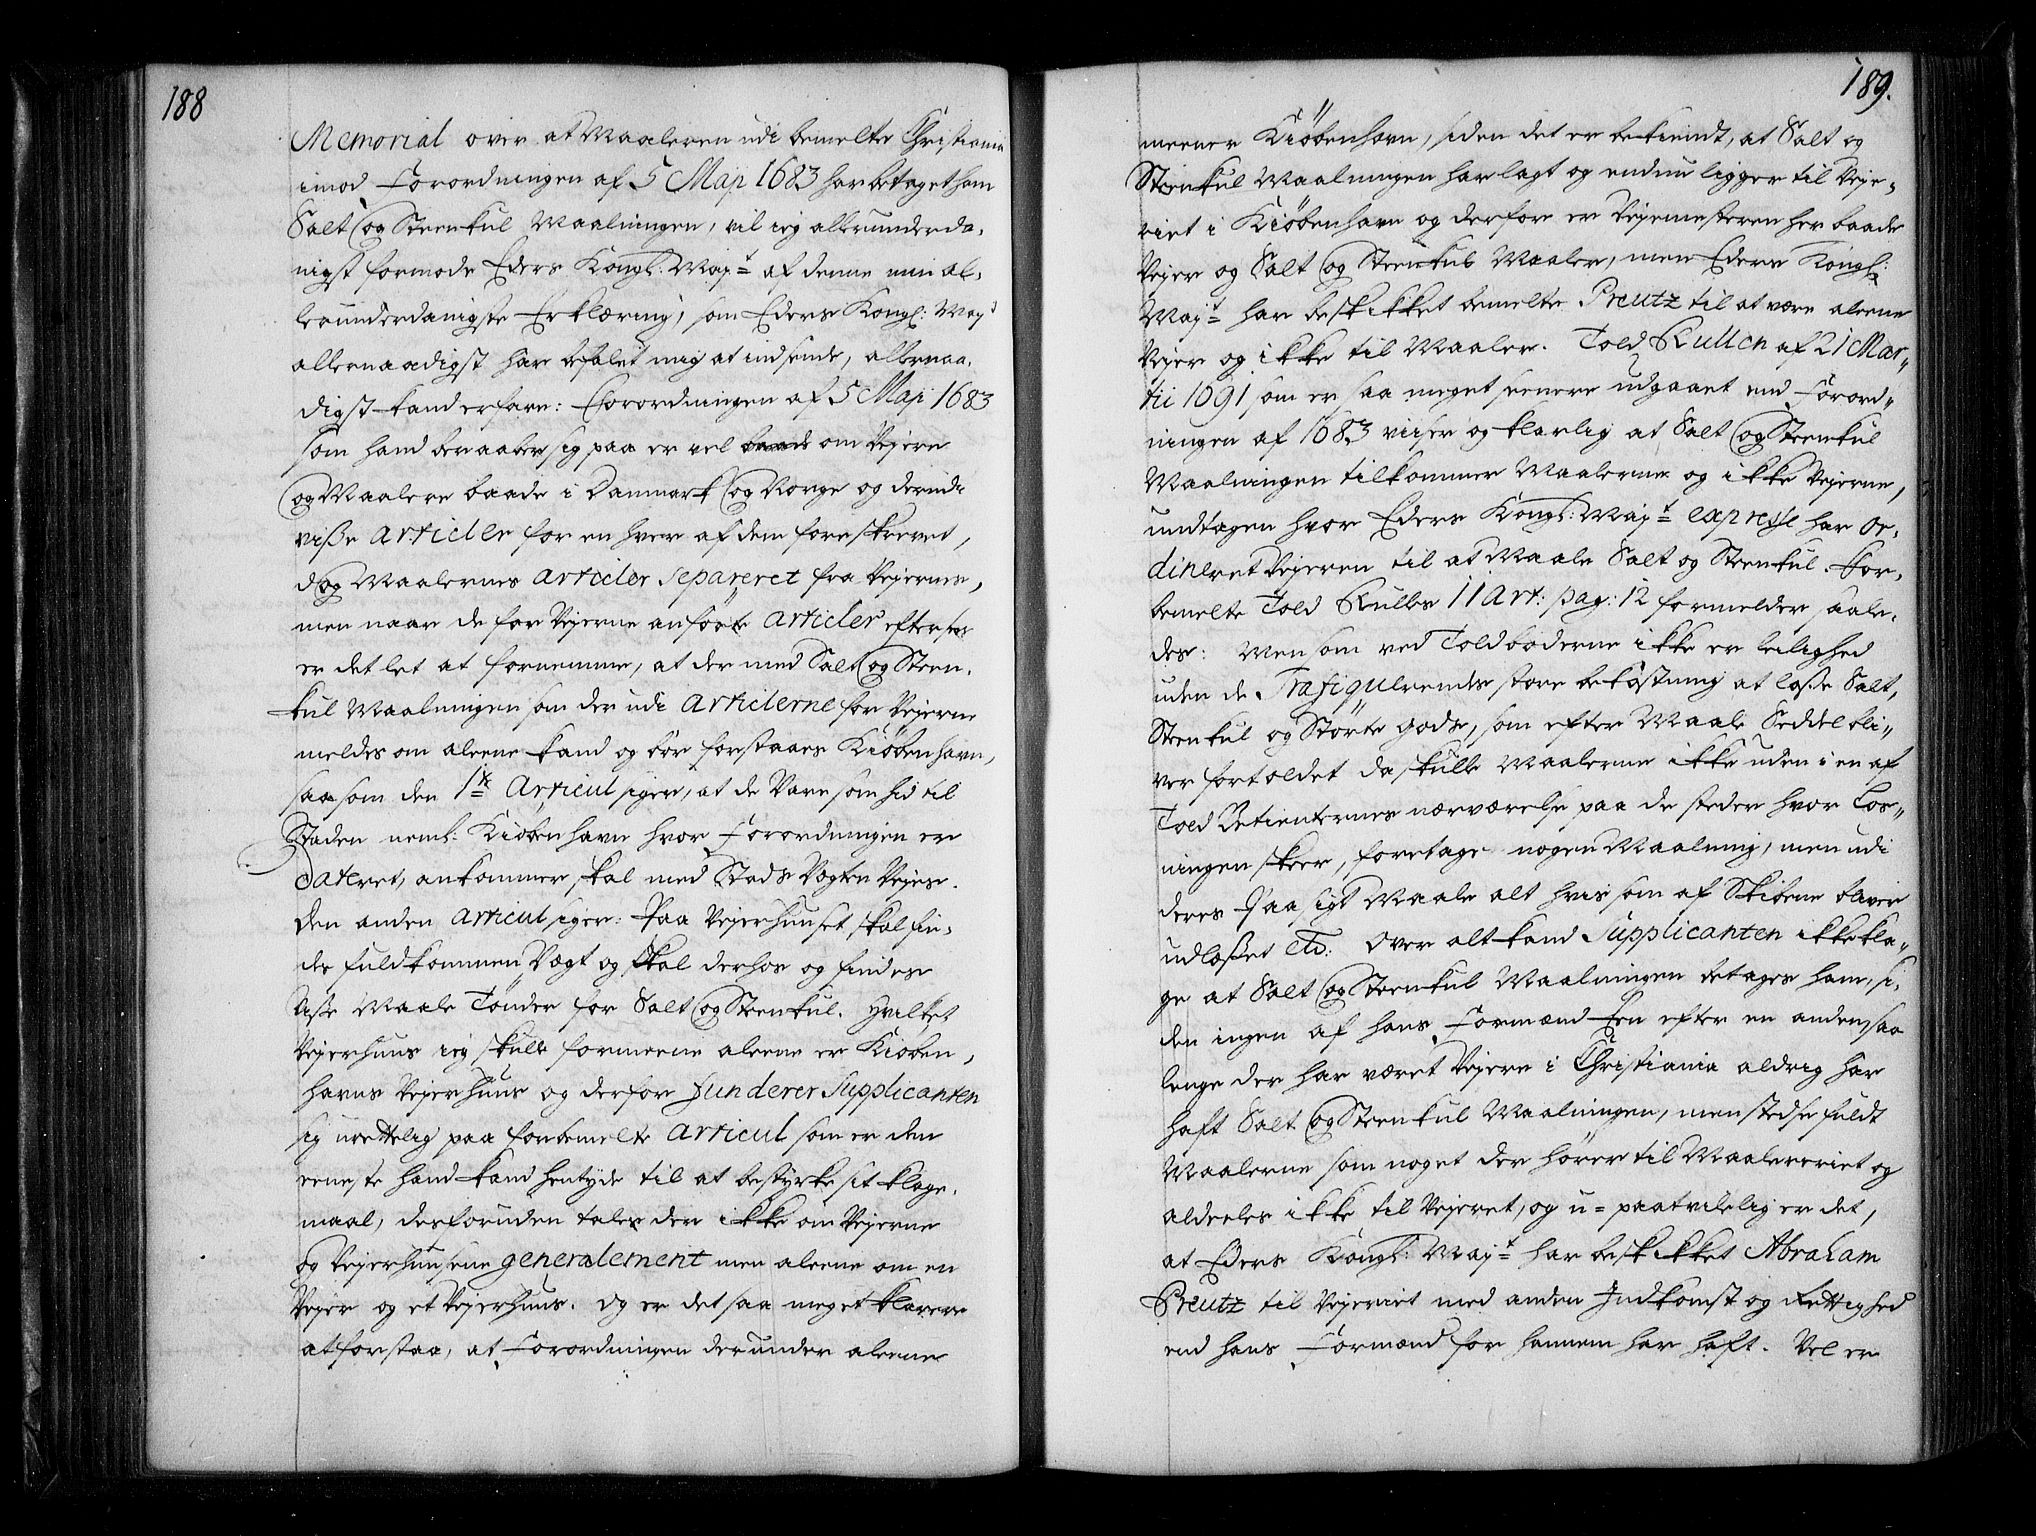 188
Memorial over at Maaleren udi bemelte Christiania
imod Forordningen af 5 Maji 1683 har betaget ham
Salt og Steenkul Maalningen, vil ieg allerunderda,
nigst formode Eders Kongl: Majt af denne min al,
lerunderdanigste Erklæring, som Eders Kongl: Majt
allernaadigst har befalet mig at indsende, allernaa,
digst kand erfare: Forordningen af 5 Maji 1683
som hand beraaber sig paa er vel om Vejere
og Maalere baade i Danmark og Norge og derudi
visse Articler for en hver af dem foreskrevet,
dog Maalernes Articler Separeret fra Vejernes,
men naar de for Vejerne anførte Articler eftersees
er det let at fornemme, at der med Salt og Steen,
kul Maalningen som der udi Articlerne for Vejerne
meldes om aleene kand og bør forstaaes Kiøbenhavn,
saasom den 1te Articul siger, at de Vare som hid til
Staden neml: Kiøbenhavn hvor Forordningen er
Dateret, ankommer skal med Stads Vegten Vejes.
Den anden Articul siger: Paa Vejerhuuset skal fin,
des fuldkommen Vegt og skal derhos og findes
Maale Tønder for Salt og Steenkul. Hvilket
Vejerhuus ieg skulle formeene aleene er Kiøben,
havns Vejerhuus og derfor funderer Supplicanten
sig urettelig paa forbemelte Articul som er den
eeneste hand kand hentyde til at bestyrke sit klage,
maal, desforuden tales der ikke om Vejerne
og Vejerhuusene generalement men aleene om en
Vejer og et Vejerhuus. Og er det saa meget klarere
at forstaa, at Forordningen derunder aleene
189.
meener Kiøbenhavn, siden det er bekiendt, at Salt og
Steenkul Maalningen har lagt og endnu ligger til Veje,
riet i Kiøbenhavn og derfore er Vejemesteren her baade
Vejer og Salt og Steenkul Maaler, men Eders Kongl:
Majt har beskikket bemelte Preutz til at være aleene
Vejer og ikke til Maaler. Told Rullen af 21 Mar,,
tii 1691 som er saa meget seenere udgaaet end Forord,,
ningen af 1683 viiser og klarlig at Salt og Steenkul
Maalningen tilkommer Maalerne og ikke Vejerne,
undtagen hvor Eders Kongl: Majt expresse har or,
dineret Vejeren til at Maale Salt og Steenkul. For,
bemelte Told Rulles 11 Art: pag: 12 formelder saale,
des: Men som ved Toldboderne ikke er leilighed
uden de Trafiquerendes store bekostning at losse Salt,
Steenkul og Størte gods, som efter Maale Seddel bli,,
ver fortoldet da skulle Maalerne ikke uden i en af
Told Betienternes nærværelse paa de steder hvor Los,,
ningen skeer, foretage nogen Maalning, men udi
deres Paasigt Maale alt hvis som af Skibene bliver
udlosset etc: Over alt kand Supplicanten ikke kla,,
ge at Salt og Steenkul Maalningen betages ham, si,
den ingen af hans Formænd Een efter en anden saa
lenge der har været Vejere i Christiania aldrig har
haft Salt og Steenkul Maalningen, men stedse fuldt
Maalerne som noget der hører til Maaleriet og
aldeeles ikke til Vejeriet, og u=paatvilelig er det,
at Eders Kongl: Majt har beskikket Abraham
Preutz til Vejeriet med anden Indkomst og Rettighed
end hans Formænd for hannem har haft. Vel er